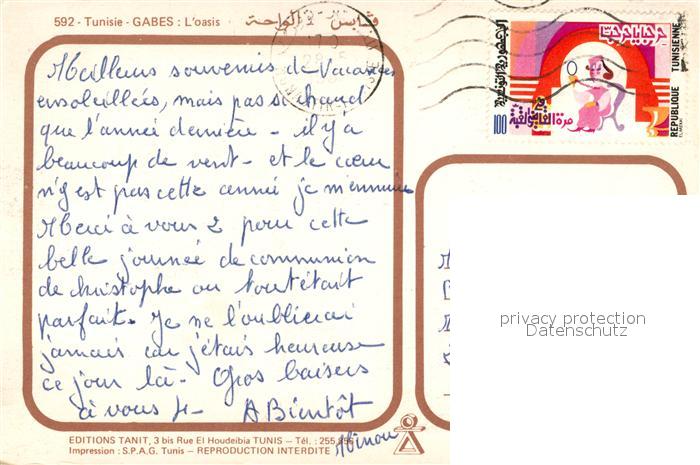 592 - Tunisie - GABES : L'oasis
قابس - الواحة
Meilleurs souvenirs de Vacances
ensoleillées, mais pas si chaud
que l'année dernière - il y'a
beaucoup de vent - et le cœur
n'y est pas cette année je m'ennuie
Merci à vous 2 pour cette
belle journée de communion
de christophe ou tout était
parfait. Je ne l'oublierai
jamais car j'étais heureuse
ce jour là - Gros baisers
à vous 4 - A Bientôt
EDITIONS TANIT, 3 bis Rue El Houdeibia TUNIS - Tél. : 255.
Impression : S.P.A.G. Tunis - REPRODUCTION INTERDITE
الجمهورية التونسية
100
REPUBLIQUE TUNISIENNE
privacy protection
Datenschutz